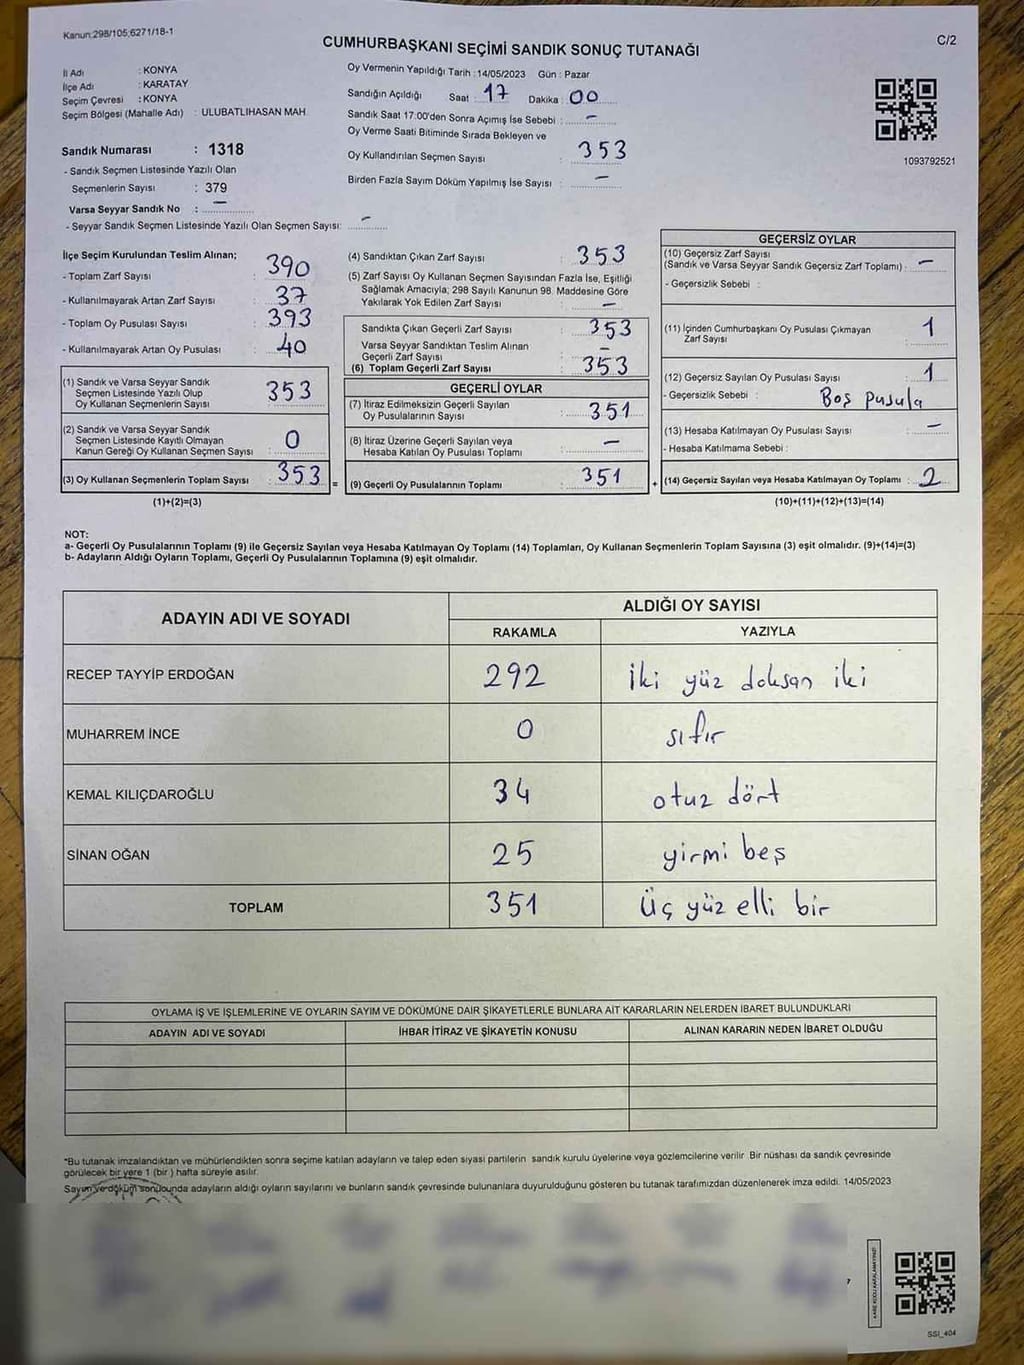 Kanun:298/105;6271/18-1
C/2
CUMHURBAŞKANI SEÇİMİ SANDIK SONUÇ TUTANAĞI
İl Adı : KONYA
İlçe Adı : KARATAY
Seçim Çevresi : KONYA
Seçim Bölgesi (Mahalle Adı) : ULUBATLIHASAN MAH
Sandık Numarası : 1318
- Sandık Seçmen Listesinde Yazılı Olan
Seçmenlerin Sayısı : 379
Varsa Seyyar Sandık No : -
- Seyyar Sandık Seçmen Listesinde Yazılı Olan Seçmen Sayısı: -
Oy Vermenin Yapıldığı Tarih : 14/05/2023 Gün : Pazar
Sandığın Açıldığı Saat : 17 Dakika : 00
Sandık Saat 17:00'den Sonra Açımış İse Sebebi : -
Oy Verme Saati Bitiminde Sırada Bekleyen ve
Oy Kullandırılan Seçmen Sayısı : 353
Birden Fazla Sayım Döküm Yapılmış İse Sayısı : -
1093792521
İlçe Seçim Kurulundan Teslim Alınan;
- Toplam Zarf Sayısı : 390
- Kullanılmayarak Artan Zarf Sayısı : 37
- Toplam Oy Pusulası Sayısı : 393
- Kullanılmayarak Artan Oy Pusulası : 40
(1) Sandık ve Varsa Seyyar Sandık
Seçmen Listesinde Yazılı Olup
Oy Kullanan Seçmenlerin Sayısı : 353
(2) Sandık ve Varsa Seyyar Sandık
Seçmen Listesinde Kayıtlı Olmayan
Kanun Gereği Oy Kullanan Seçmen Sayısı : 0
(3) Oy Kullanan Seçmenlerin Toplam Sayısı : 353
(1)+(2)=(3)
(4) Sandıktan Çıkan Zarf Sayısı : 353
(5) Zarf Sayısı Oy Kullanan Seçmen Sayısından Fazla İse, Eşitliği
Sağlamak Amacıyla; 298 Sayılı Kanunun 98. Maddesine Göre
Yakılarak Yok Edilen Zarf Sayısı : -
Sandıkta Çıkan Geçerli Zarf Sayısı : 353
Varsa Seyyar Sandıktan Teslim Alınan
Geçerli Zarf Sayısı : -
(6) Toplam Geçerli Zarf Sayısı : 353
GEÇERLİ OYLAR
(7) İtiraz Edilmeksizin Geçerli Sayılan
Oy Pusulalarının Sayısı : 351
(8) İtiraz Üzerine Geçerli Sayılan veya
Hesaba Katılan Oy Pusulası Toplamı : -
= (9) Geçerli Oy Pusulalarının Toplamı : 351
GEÇERSİZ OYLAR
(10) Geçersiz Zarf Sayısı
(Sandık ve Varsa Seyyar Sandık Geçersiz Zarf Toplamı) : -
- Geçersizlik Sebebi :
(11) İçinden Cumhurbaşkanı Oy Pusulası Çıkmayan
Zarf Sayısı : 1
(12) Geçersiz Sayılan Oy Pusulası Sayısı : 1
- Geçersizlik Sebebi : Boş pusula
(13) Hesaba Katılmayan Oy Pusulası Sayısı : -
- Hesaba Katılmama Sebebi :
+ (14) Geçersiz Sayılan veya Hesaba Katılmayan Oy Toplamı : 2
(10)+(11)+(12)+(13)=(14)
NOT:
a- Geçerli Oy Pusulalarının Toplamı (9) ile Geçersiz Sayılan veya Hesaba Katılmayan Oy Toplamı (14) Toplamları, Oy Kullanan Seçmenlerin Toplam Sayısına (3) eşit olmalıdır. (9)+(14)=(3)
b- Adayların Aldığı Oyların Toplamı, Geçerli Oy Pusulalarının Toplamına (9) eşit olmalıdır.
ADAYIN ADI VE SOYADI
ALDIĞI OY SAYISI
RAKAMLA YAZIYLA
RECEP TAYYİP ERDOĞAN 292 İki yüz doksan iki
MUHARREM İNCE 0 sıfır
KEMAL KILIÇDAROĞLU 34 otuz dört
SİNAN OĞAN 25 yirmi beş
TOPLAM 351 Üç yüz elli bir
OYLAMA İŞ VE İŞLEMLERİNE VE OYLARIN SAYIM VE DÖKÜMÜNE DAİR ŞİKAYETLERLE BUNLARA AİT KARARLARIN NELERDEN İBARET BULUNDUKLARI
ADAYIN ADI VE SOYADI İHBAR İTİRAZ VE ŞİKAYETİN KONUSU ALINAN KARARIN NEDEN İBARET OLDUĞU
*Bu tutanak imzalandıktan ve mühürlendikten sonra seçime katılan adayların ve talep eden siyasi partilerin sandık kurulu üyelerine veya gözlemcilerine verilir Bir nüshası da sandık çevresinde
görülecek bir yere 1 (bir ) hafta süreyle asılır.
Sayım ve döküm sonucunda adayların aldığı oyların sayılarını ve bunların sandık çevresinde bulunanlara duyurulduğunu gösteren bu tutanak tarafımızdan düzenlenerek imza edildi. 14/05/2023
KARE KODU KARALAMAYINIZ!
SSI_404